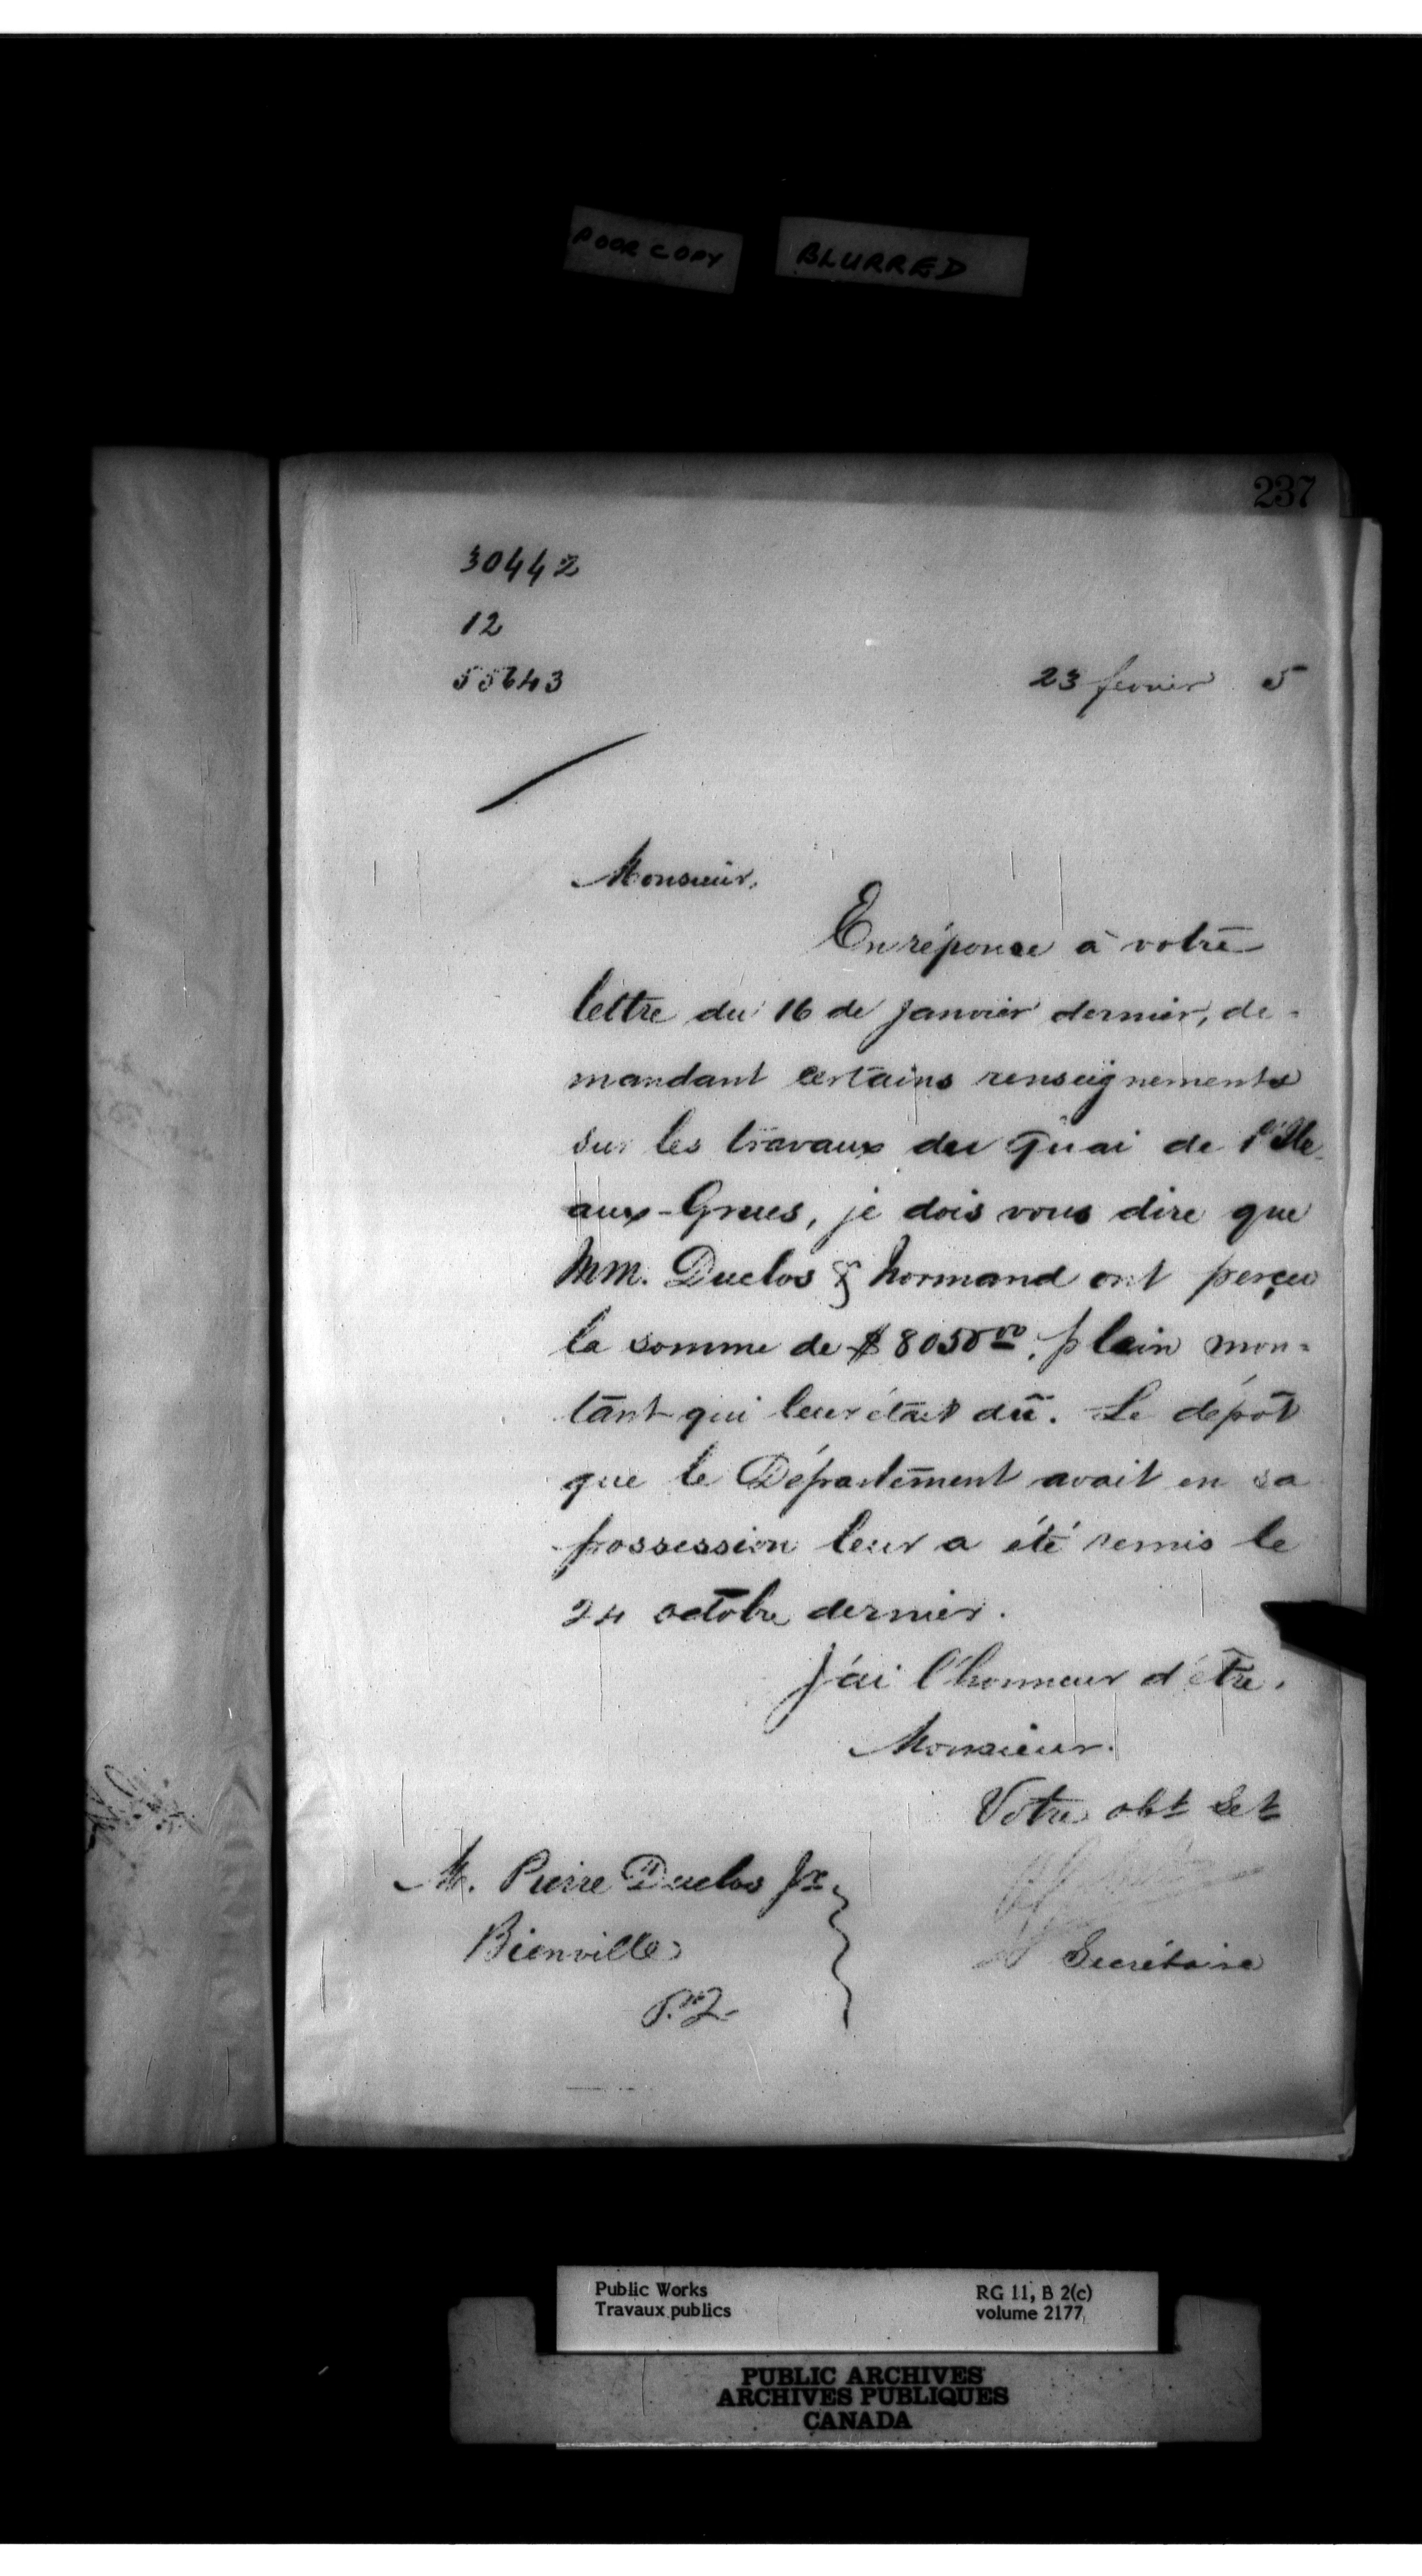 POOR COPY
BLURRED
237
30442
12
55643
23 fevrier 5
Monsieur,
En réponse à votre
lettre du 16 de Janvier dernier, de-
mandant certains renseignements
sur les travaux du Quai de l'Ile
aux-Grues, je dois vous dire que
MM. Duclos & Normand ont perçu
la somme de $8050 00, plein mon=
tant qui leur était dû. Le dépôt
que le Département avait en sa
possession leur a été remis le
24 octobre dernier.
J'ai l'honneur d'être,
Monsieur.
Votre obt Set
M. Pierre Duclos Jr
Bienville
P.Q.
Secrétaire
Public Works
Travaux publics
RG 11, B 2(c)
volume 2177
PUBLIC ARCHIVES
ARCHIVES PUBLIQUES
CANADA